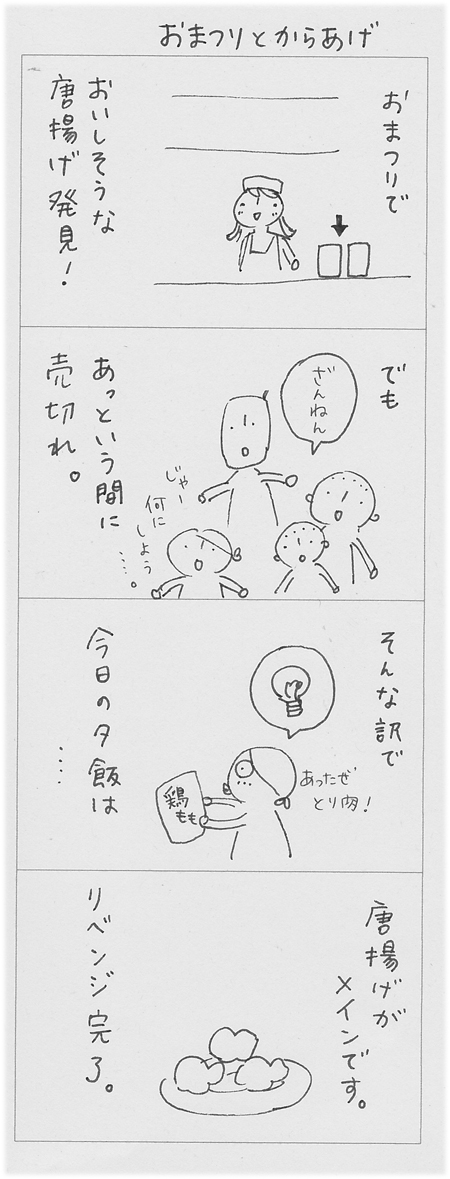 おまつりとからあげ
おまつりで
おいしそうな
唐揚げ発見!
でも
ざんねん
じゃー
何に
しよう
……。
あっという間に
売切れ。
そんな訳で
あったぜ
とり肉!
鶏
もも
今日の夕飯は
……
唐揚げが
メインです。
リベンジ完了。